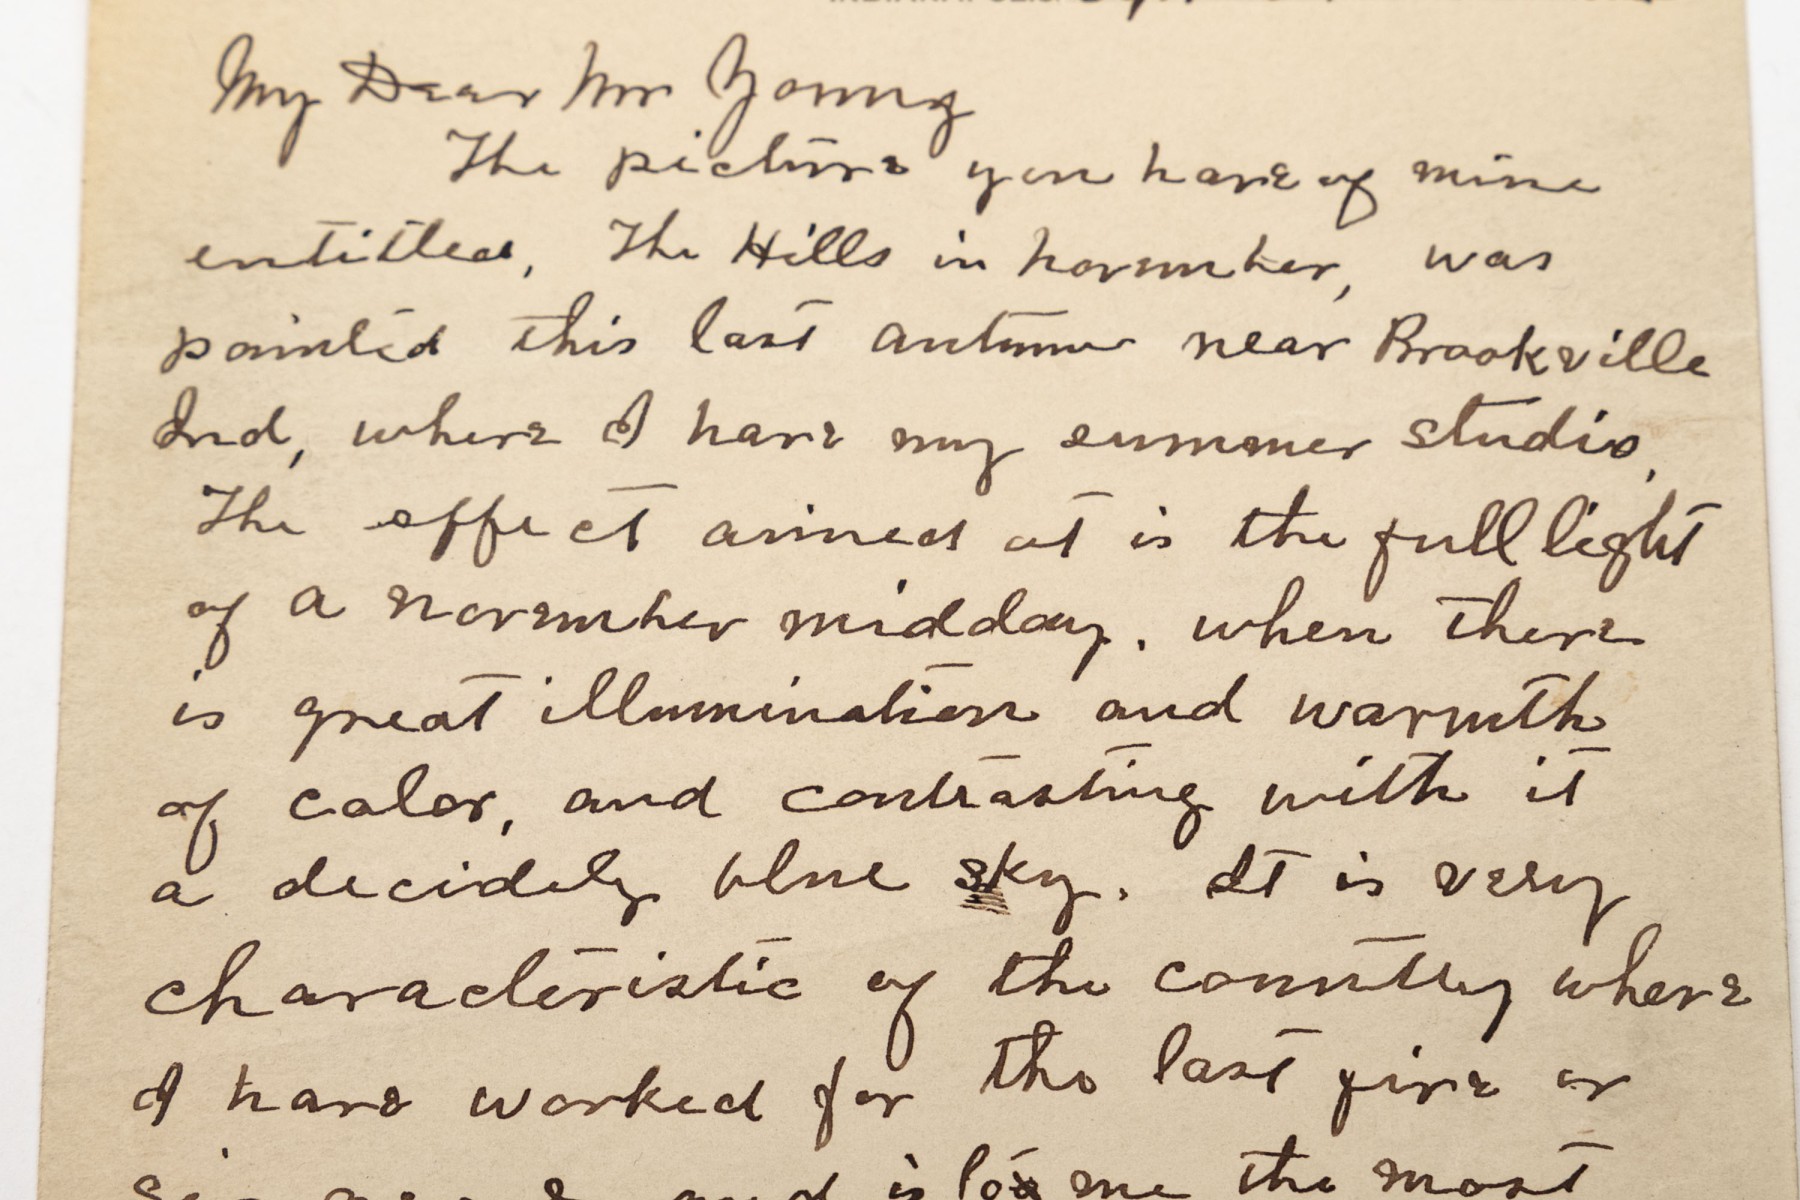 My Dear Mr Young
The picture you have of mine
entitled, The Hills in november, was
painted this last autumn near Brookville
Ind, where I have my summer studio,
The effect aimed at is the full light
of a november midday. when there
is great illumination and warmth
of color, and contrasting with it
a decidely blue sky. It is very
characteristic of the country where
I have worked for the last five or
and is to me the most